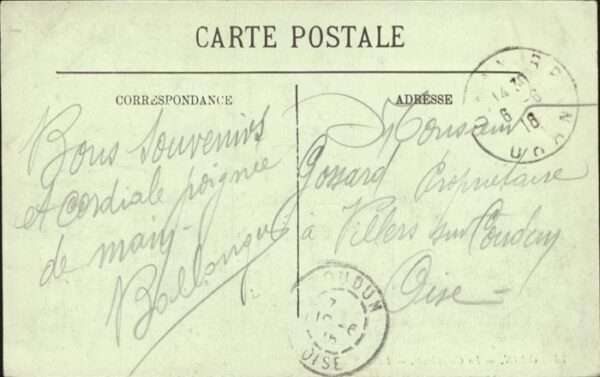 CARTE POSTALE
CORRESPONDANCE
Bons souvenirs
et cordiale poignée
de main -
ADRESSE
Monsieur
Gossard Propriétaire
à Villers sur Coudun
Oise
14 30
6 - 6
16
COUDUN
7
OISE